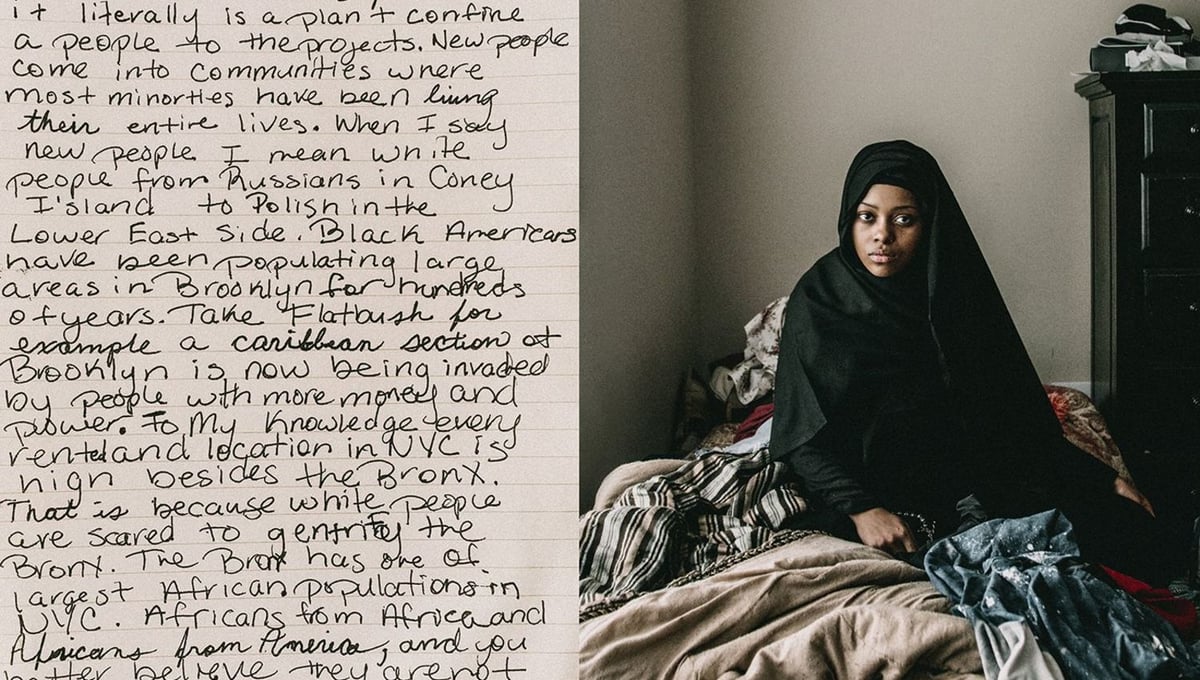 it literally is a plan't confine
a people to the projects. New people
come into communities where
most minorties have been living
their entire lives. When I say
new people I mean white
people from Russians in Coney
I'sland to Polish in the
Lower East Side. Black Americans
have been populating large
areas in Brooklyn for hundreds
of years. Take Flatbush for
example a caribbean section of
Brooklyn is now being invaded
by people with more money and
power. To My Knowledge every
rented and location in NYC is
high besides the Bronx.
That is because white people
are scared to gentrify the
Bronx. The Bronx has one of
largest African populations in
NYC. Africans from Africa and
Africans from America, and you
better believe they are not